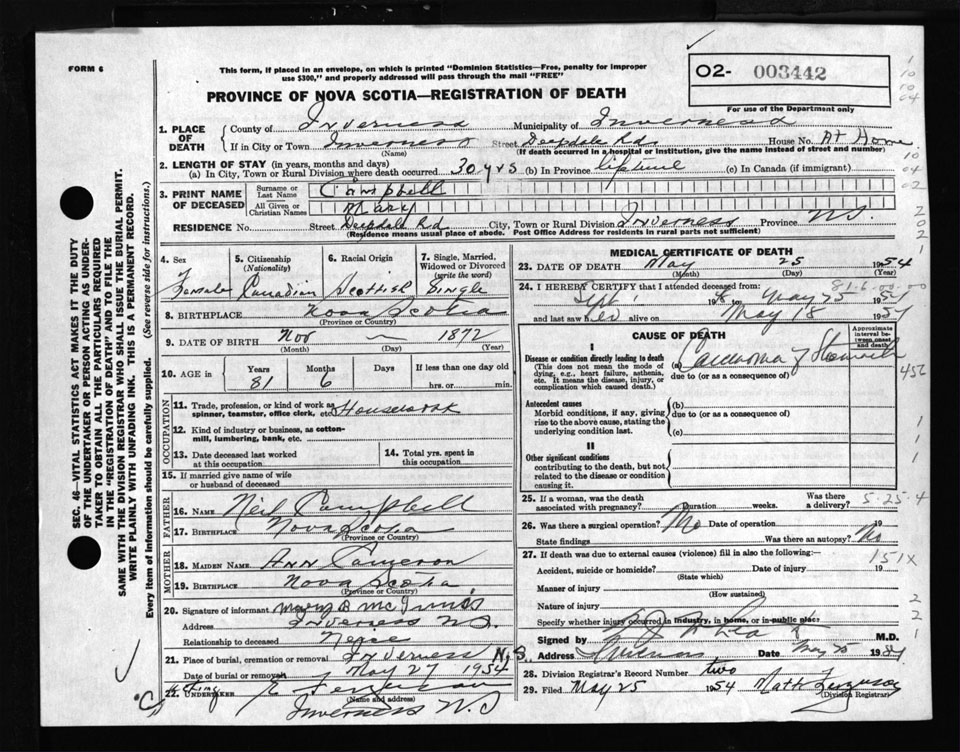 FORM 6
This form, if placed in an envelope, on which is printed "Dominion Statistics—Free, penalty for improper
use $300," and properly addressed will pass through the mail "FREE"
02- 003442
For use of the Department only
PROVINCE OF NOVA SCOTIA—REGISTRATION OF DEATH
1. PLACE OF DEATH
County of Inverness Municipality of Inverness
If in City or Town Inverness Street Deepdale Rd House No. At Home
(Name) (If death occurred in a hospital or institution, give name instead of street and number)
2. LENGTH OF STAY (in years, months and days)
(a) In City, Town or Rural Division where death occurred 30 yrs (b) In Province lifetime (c) In Canada (if immigrant)
3. PRINT NAME OF DECEASED
Surname or Last Name Campbell
All Given or Christian Names Mary
RESIDENCE No. Street Deepdale Rd City, Town or Rural Division Inverness Province N.S.
(Residence means usual place of abode. Post Office Address for residents in rural parts not sufficient)
4. Sex Female
5. Citizenship (Nationality) Canadian
6. Racial Origin Scottish
7. Single, Married, Widowed or Divorced (write the word) Single
8. BIRTHPLACE Nova Scotia
(Province or Country)
9. DATE OF BIRTH Nov 1872
(Month) (Day) (Year)
10. AGE in Years 81 Months 6 Days If less than one day old
hrs. or min.
OCCUPATION
11. Trade, profession, or kind of work as spinner, teamster, office clerk, etc. Housework
12. Kind of industry or business, as cotton-mill, lumbering, bank, etc.
13. Date deceased last worked at this occupation
14. Total yrs. spent in this occupation
15. If married give name of wife or husband of deceased
FATHER
16. NAME Neil Campbell
17. BIRTHPLACE Nova Scotia
(Province or Country)
MOTHER
18. MAIDEN NAME Ann Cameron
19. BIRTHPLACE Nova Scotia
(Province or Country)
20. Signature of informant Mary B McInnis
Address Inverness N.S.
Relationship to deceased Neice
21. Place of burial, cremation or removal Inverness N.S.
Date of burial or removal May 27 1954
22. UNDERTAKER E Ferguson
(Name and address)
Inverness N.S
MEDICAL CERTIFICATE OF DEATH
23. DATE OF DEATH May 25 1954
(Month) (Day) (Year)
81-6-00-00
24. I HEREBY CERTIFY that I attended deceased from:
Sept 1 19 to May 25 1954
and last saw her alive on May 18 1954
CAUSE OF DEATH
Approximate interval between onset and death
I
Disease or condition directly leading to death
(This does not mean the mode of dying, e.g., heart failure, asthenia, etc. It means the disease, injury, or complication which caused death.)
(a) Carcinoma of Stomach
due to (or as a consequence of)
Antecedent causes
Morbid conditions, if any, giving rise to the above cause, stating the underlying condition last.
(b)
due to (or as a consequence of)
(c)
II
Other significant conditions
contributing to the death, but not related to the disease or condition causing it.
25. If a woman, was the death associated with pregnancy? Duration weeks. Was there a delivery?
5-25-4
26. Was there surgical operation? No Date of operation 19
State findings Was there an autopsy? No
27. If death was due to external causes (violence) fill in also the following:—
151X
Accident, suicide or homicide? Date of injury 19
(State which)
Manner of injury
(How sustained)
Nature of injury
Specify whether injury occurred in industry, in home, or in public place:
Signed by M.D.
Address Inverness Date May 25 19
28. Division Registrar's Record Number two
29. Filed May 25 1954 Matt Ferguson
(Division Registrar)
SEC. 46—VITAL STATISTICS ACT MAKES IT THE DUTY
OF THE UNDERTAKER OR PERSON ACTING AS UNDER-
TAKER TO OBTAIN ALL THE PARTICULARS REQUIRED
IN THE "REGISTRATION OF DEATH" AND TO FILE THE
SAME WITH THE DIVISION REGISTRAR WHO SHALL ISSUE THE BURIAL PERMIT.
WRITE PLAINLY WITH UNFADING INK. THIS IS A PERMANENT RECORD.
Every item of information should be carefully supplied. (See reverse side for instructions.)